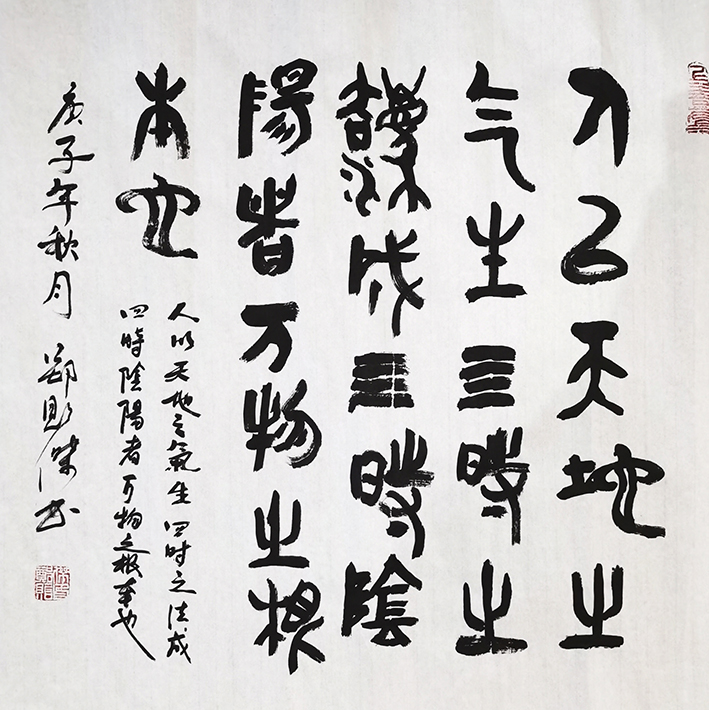 人以天地之
气生亖時之
灋成亖時陰
陽者万物之根
本也
人以天地之氣生四时之法成
四時陰陽者万物之根本也
庚子年秋月 鄭傑书